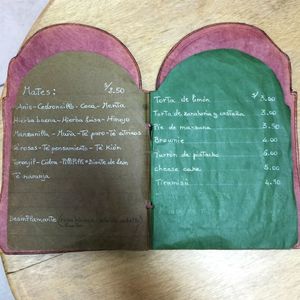 Mates: S/ 3.50
Anís - Cedroncillo - Coca - Menta
Hierba buena - Hierba luisa - Hinojo
Manzanilla - Muña - Té puro - Té cítricos
Té rosas - Té pensamiento - Té Kión
Toronjil - Cidra - Diente de León
Té naranja
Desinflamante
Torta de limón S/ 3.00
Torta de zanahoria y castaña 3.00
Pie de manzana 3.50
Brownie 4.00
Turrón de pistacho 5.00
cheese cake 5.00
Tiramisú 4.50